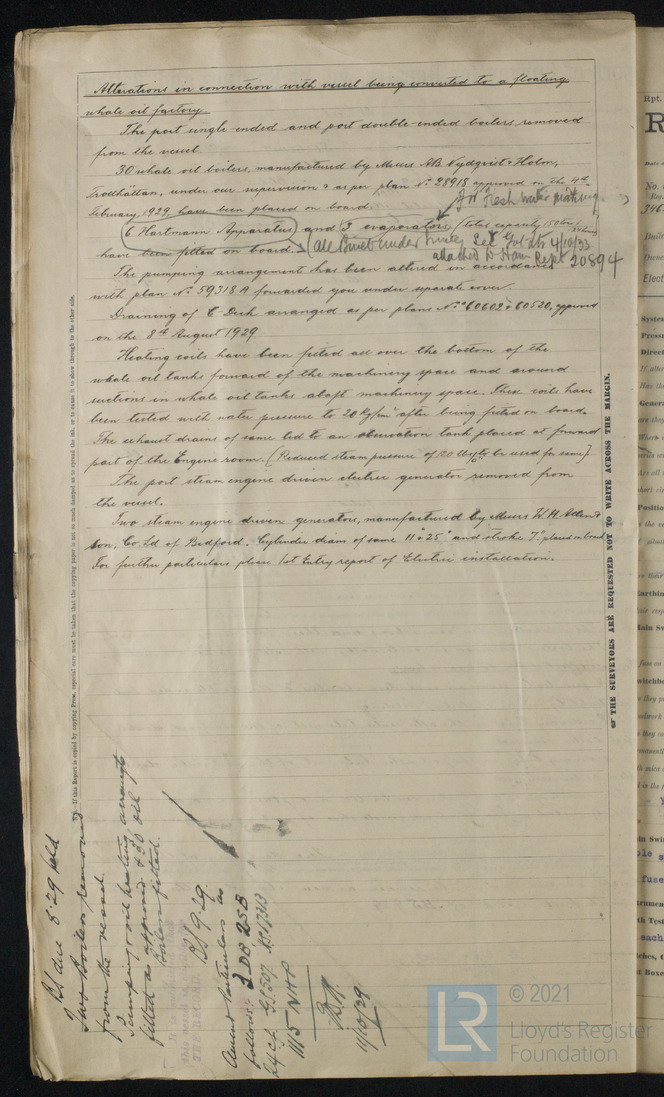 Alterations in connection with vessel being converted to a floating
whale oil factory.
The port single-ended and port double-ended boilers removed
from the vessel.
30 whale oil boilers, manufactured by Messrs AB. Nydqvist & Holm,
Trollhättan, under our supervision & as per plan No 28918 approved on the 4th
February, 1929, have been placed on board.
for Fresh water making.
6 Hartmann Apparatus and 3 evaporators (total capacity
have been fitted on board. (All Built Under Survey See Got. Ltr 4/10/33
attached to Ham Rept 20894
The pumping arrangement has been altered in accordance
with plan No 59318A forwarded you under separate cover.
Draining of C Deck arranged as per plans Nos 60602 & 60520, approved
on the 8th August 1929
Heating coils have been fitted all over the bottom of the
whale oil tanks forward of the machinery space and around
suctions in whale oil tanks abaft machinery space. These coils have
been tested with water pressure to 20 Kg/cm2 after being fitted on board.
The exhaust drains of same led to an observation tank placed at forward
part of the Engine room. (Reduced steam pressure of 120 lbs to be used for same)
The port steam engine driven electric generator removed from
the vessel.
Two steam engine driven generators, manufactured by Messrs W. H. Allen &
Son, Co. Ld of Bedford. Cylinder diam of same 11 & 25" and stroke 7" placed on board
For further particulars please 1st Entry report of Electric installation.
N.B.—If this Report is copied by copying Press, especial care must be taken that the copying paper is not so much damped as to spread the ink, or to cause it to show through to the other side.
THE SURVEYORS ARE REQUESTED NOT TO WRITE ACROSS THE MARGIN.
BS due 8.29 held
Two boilers removed
from the vessel.
Pumping & oil heating arrangts
fitted as approved & 30 oil
boilers fitted.
BS 9.29
Amend particulars as
follows 2 DB 2SB
24 cf
1115 NHP
11/10/29
Rpt.
No.
Built
Owne
Elect
System
Press
Direct
Gener
Positio
© 2021
LR
Lloyd's Register
Foundation